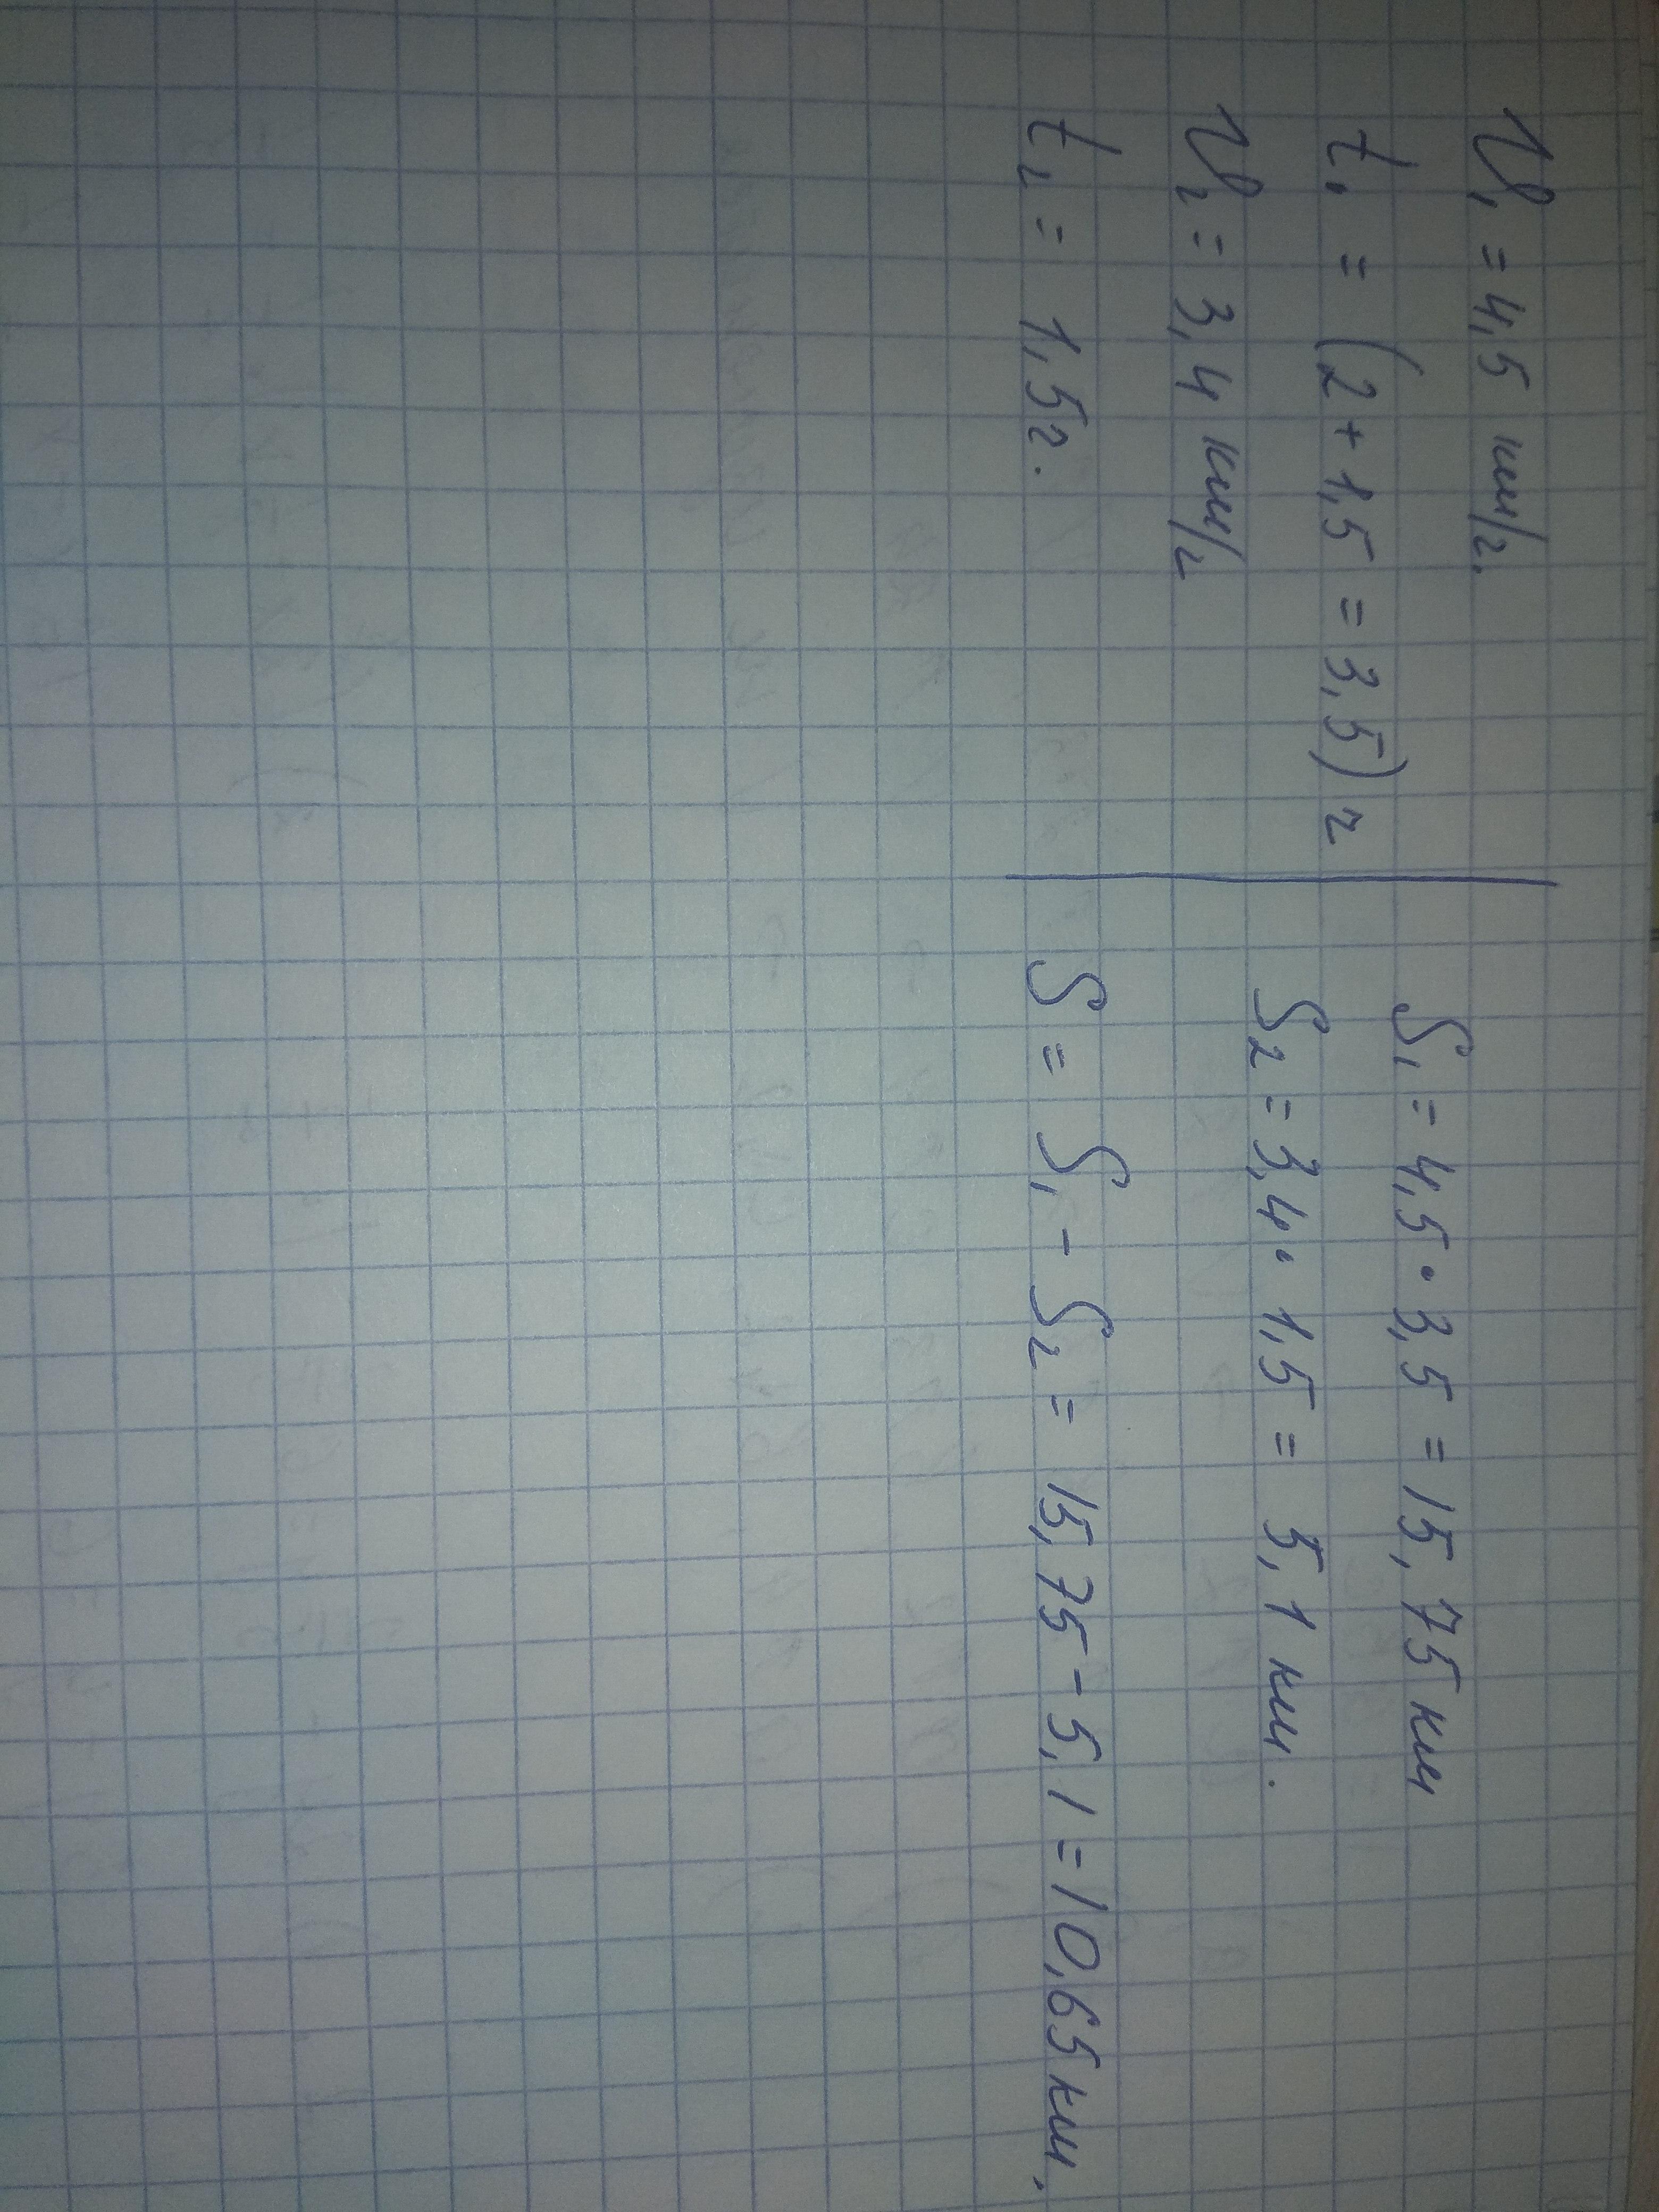 V₁ = 4,5 км/г.
t₁ = (2 + 1,5 = 3,5) г
V₂ = 3,4 км/г
t₂ = 1,5 г.
S₁ = 4,5 · 3,5 = 15,75 км
S₂ = 3,4 · 1,5 = 5,1 км.
S = S₁ - S₂ = 15,75 - 5,1 = 10,65 км,